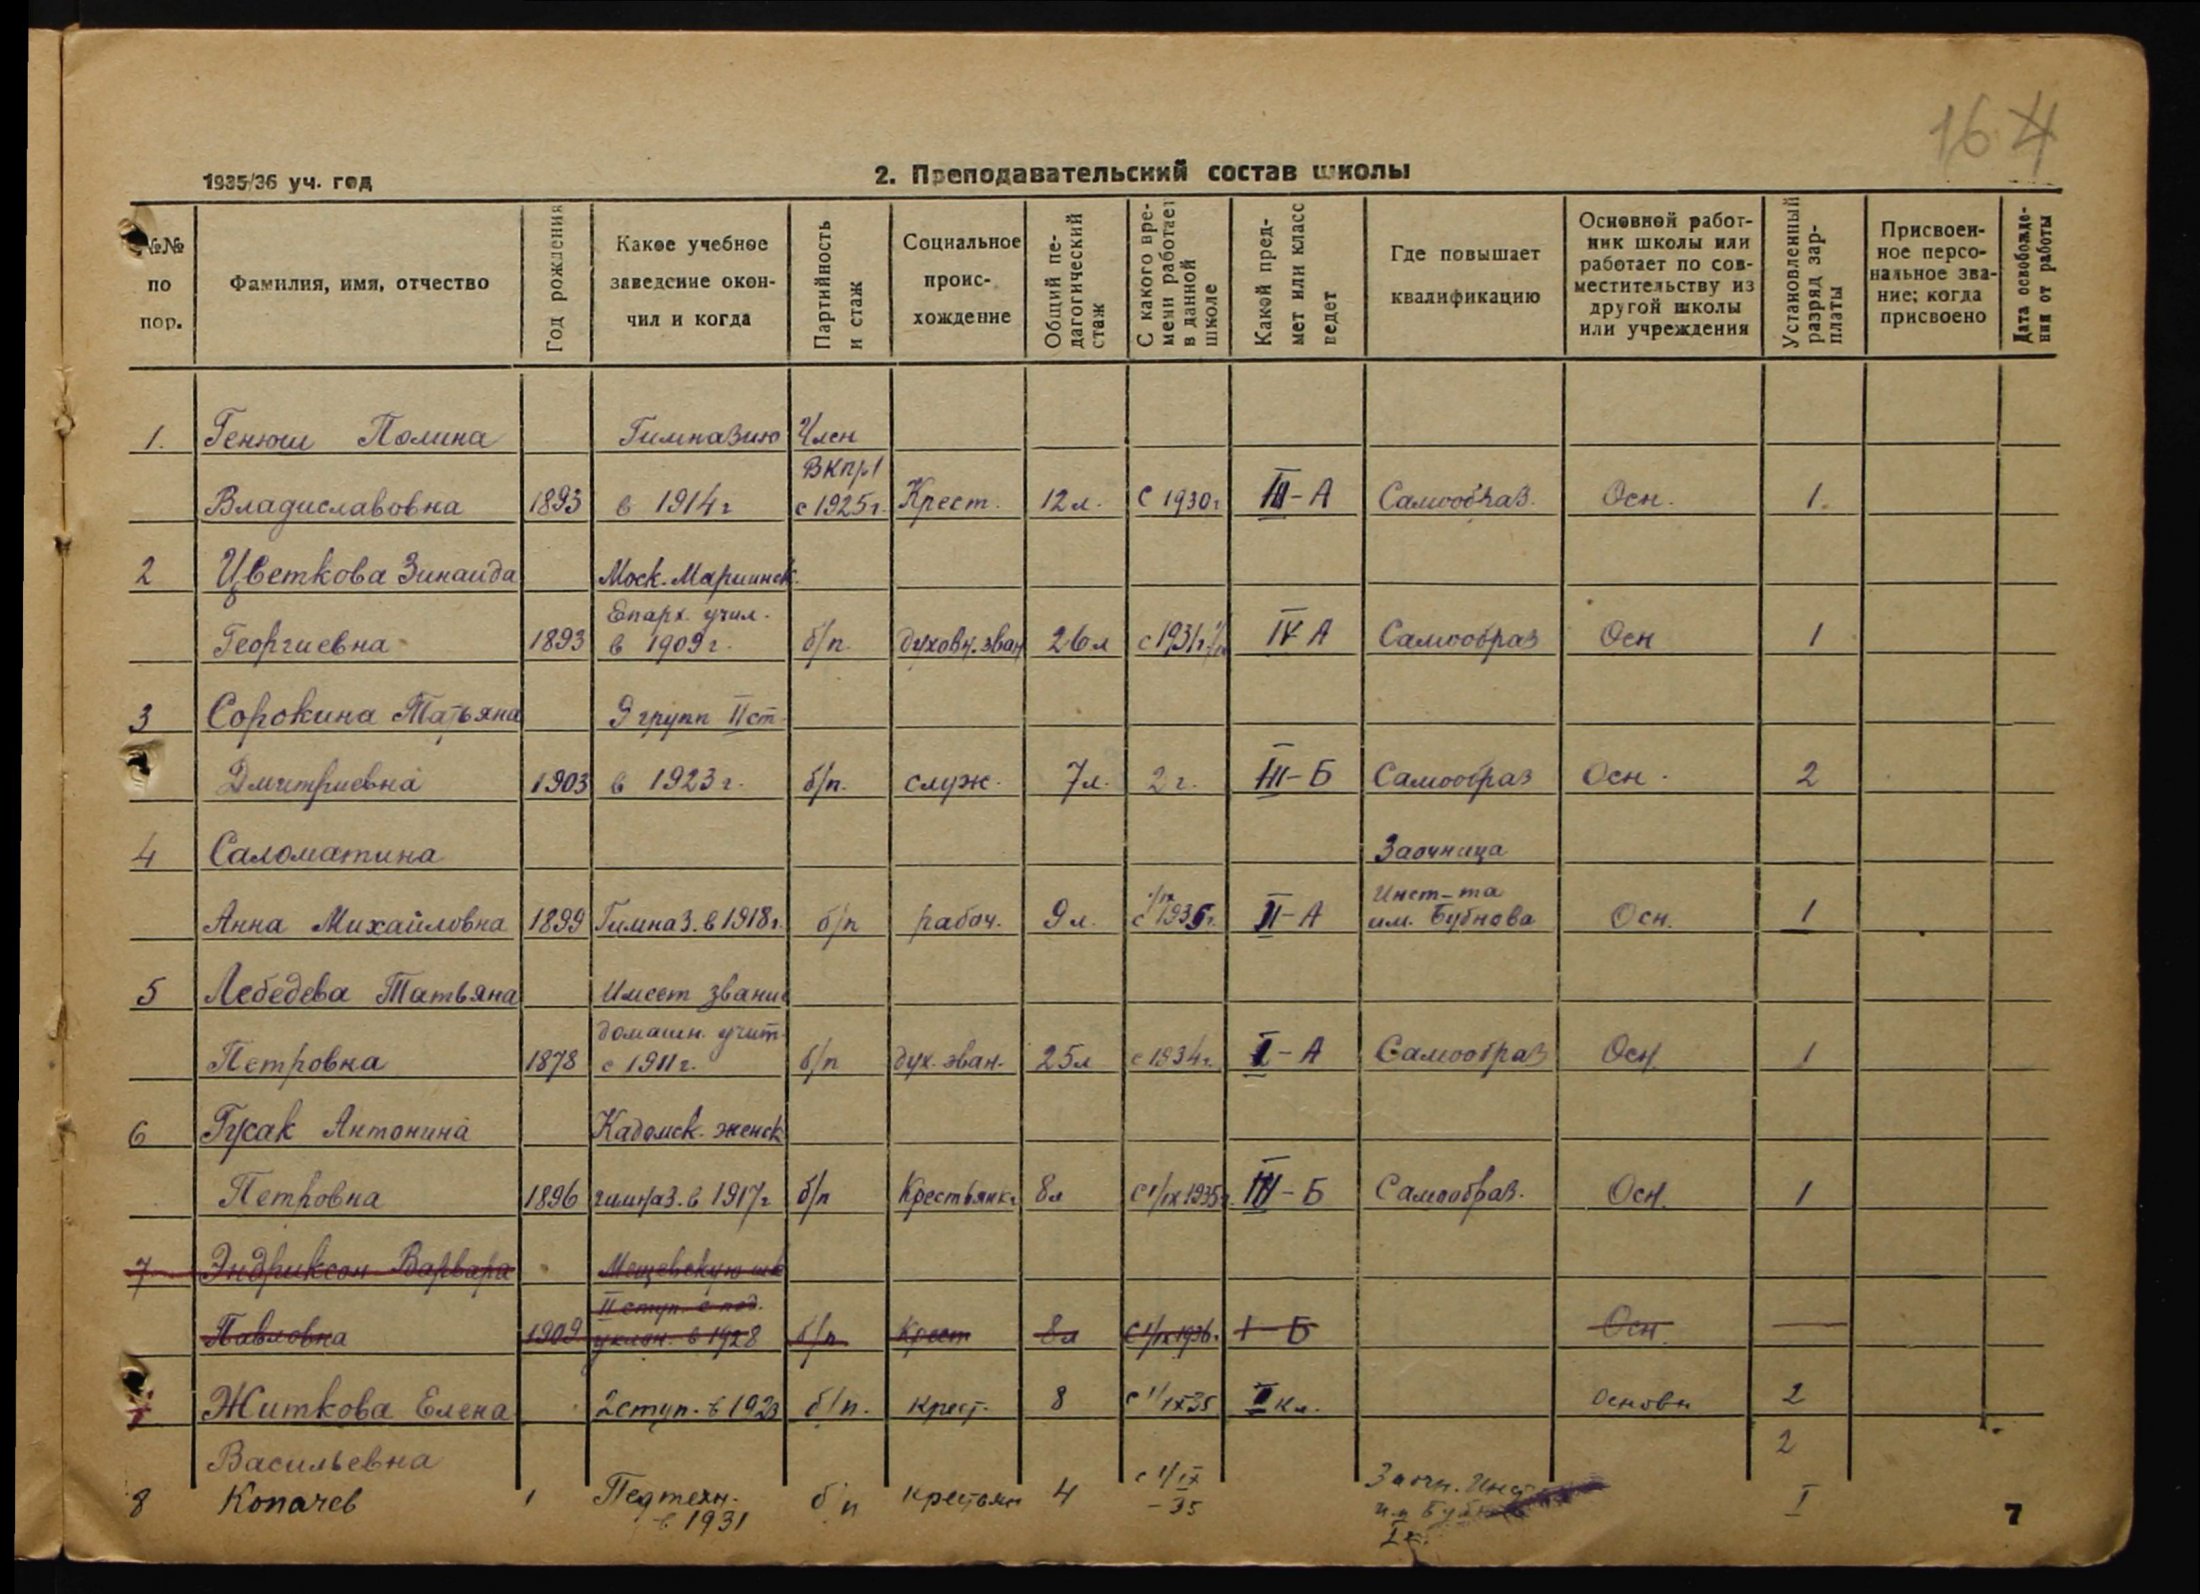 16 4
1935/36 уч. год
2. Преподавательский состав школы
№№ по пор.
Фамилия, имя, отчество
Год рождения
Какое учебное заведение окончил и когда
Партийность и стаж
Социальное происхождение
Общий педагогический стаж
С какого времени работает в данной школе
Какой предмет или класс ведет
Где повышает квалификацию
Основной работник школы или работает по совместительству из другой школы или учреждения
Установленный разряд зарплаты
Присвоенное персональное звание; когда присвоено
Дата освобождения от работы
1. Генюш Полина Гимназию Член
ВКП
Владиславовна 1893 в 1914 г с 1925 г. Крест. 12 л. С 1930 г III-А Самообраз. Осн. 1.
2 Цветкова Зинаида Моск. Мариинск.
Епарх. учил.
Георгиевна 1893 в 1909 г. б/п. духовн. зван 26 л с 1931 г. IV А Самообраз Осн 1
3 Сорокина Татьяна 9 групп II ст.
Дмитриевна 1903 в 1923 г. б/п. служ. 7 л. 2 г. III-Б Самообраз Осн. 2
4 Саломатина Заочница
Инст-та
Анна Михайловна 1899 Гимназ. в 1918 г. б/п рабоч. 9 л. с 1/IX 1935 г. II-А им. Бубнова Осн. 1
5 Лебедева Татьяна Имеет звание
домашн. учит.
Петровна 1878 с 1911 г. б/п дух. зван. 25 л с 1934 г. I-А Самообраз Осн. 1
6 Гусак Антонина Кадомск. женск
Петровна 1896 гимназ. в 1917 г б/п Крестьянк. 8 л С 1/IX 1935 г. III-Б Самообраз. Осн. 1
7 Эндриксон Варвара Мещевскую шк
II ступ. с пед.
Павловна 1909 уклон. в 1928 б/п Крест 8 л С 1/IX 1936 г. I-Б Осн. —
Житкова Елена 2 ступ. в 1923 б/п. крест. 8 с 1/IX 35 II кл. основн 2
Васильевна 2
8 Копачев Педтехн. б/п крестьян 4 с 1/IX Заочн. Инст I
в 1931 -35 им Бубн
7